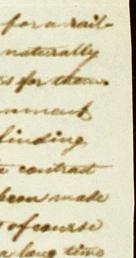 for a rail-
naturally
for them.
finding
contrast
been made
of course
a long time